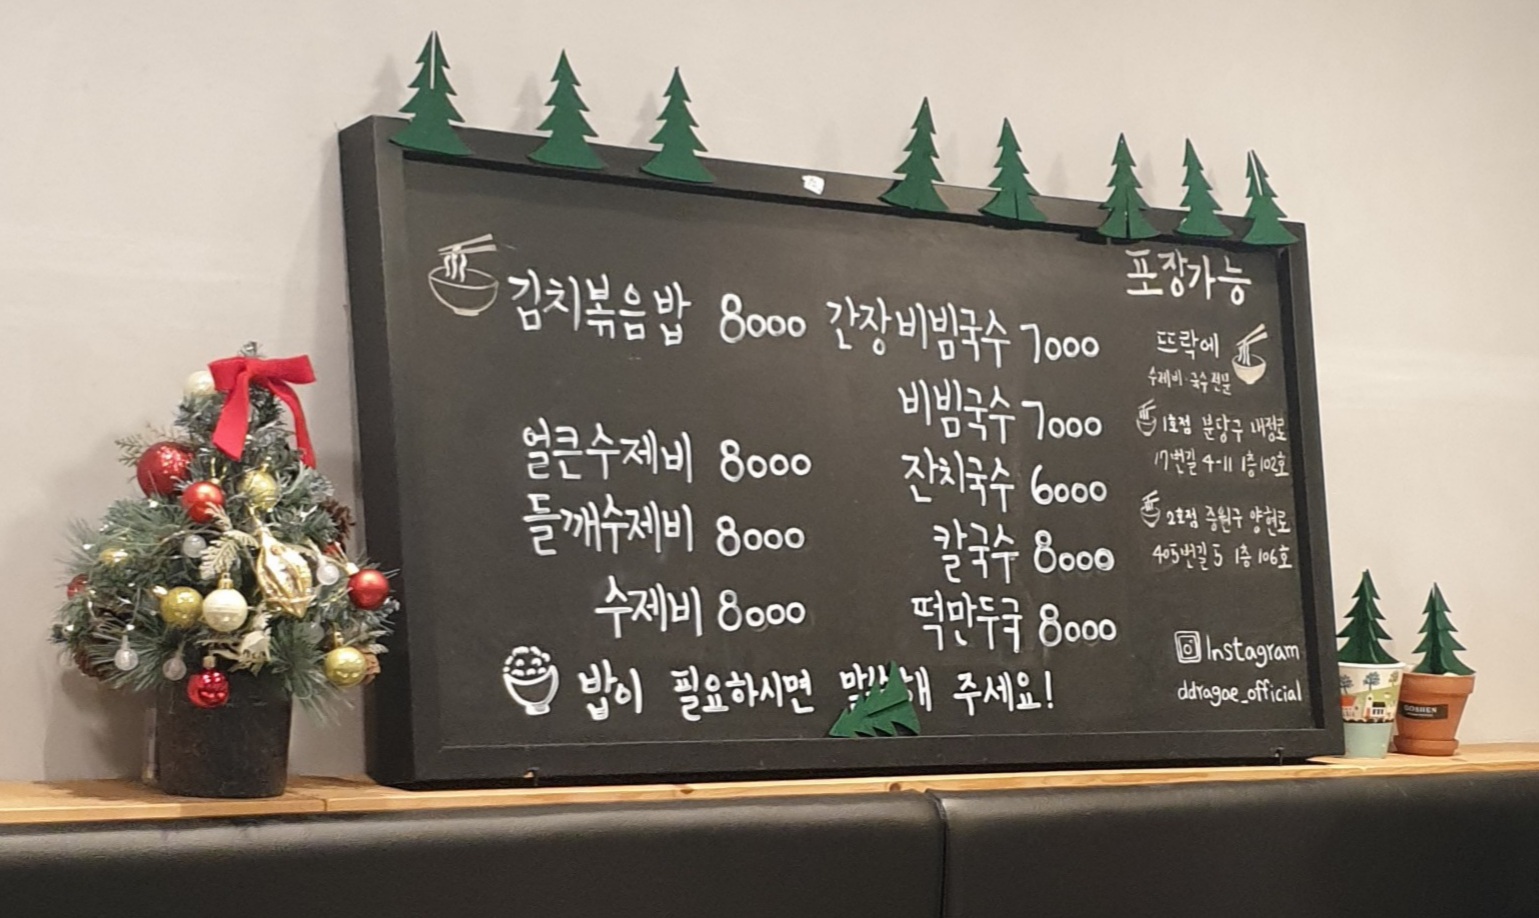 김치볶음밥 8000
얼큰수제비 8000
들깨수제비 8000
수제비 8000
간장비빔국수 7000
비빔국수 7000
잔치국수 6000
칼국수 8000
떡만두국 8000
밥이 필요하시면 해 주세요!
포장가능
뜨락에
수제비·국수전문
1호점 분당구 내정로
17번길 4-11 1층 102호
2호점 중원구 양현로
405번길 5 1층 106호
Instagram
ddragae_official
GOSHEN